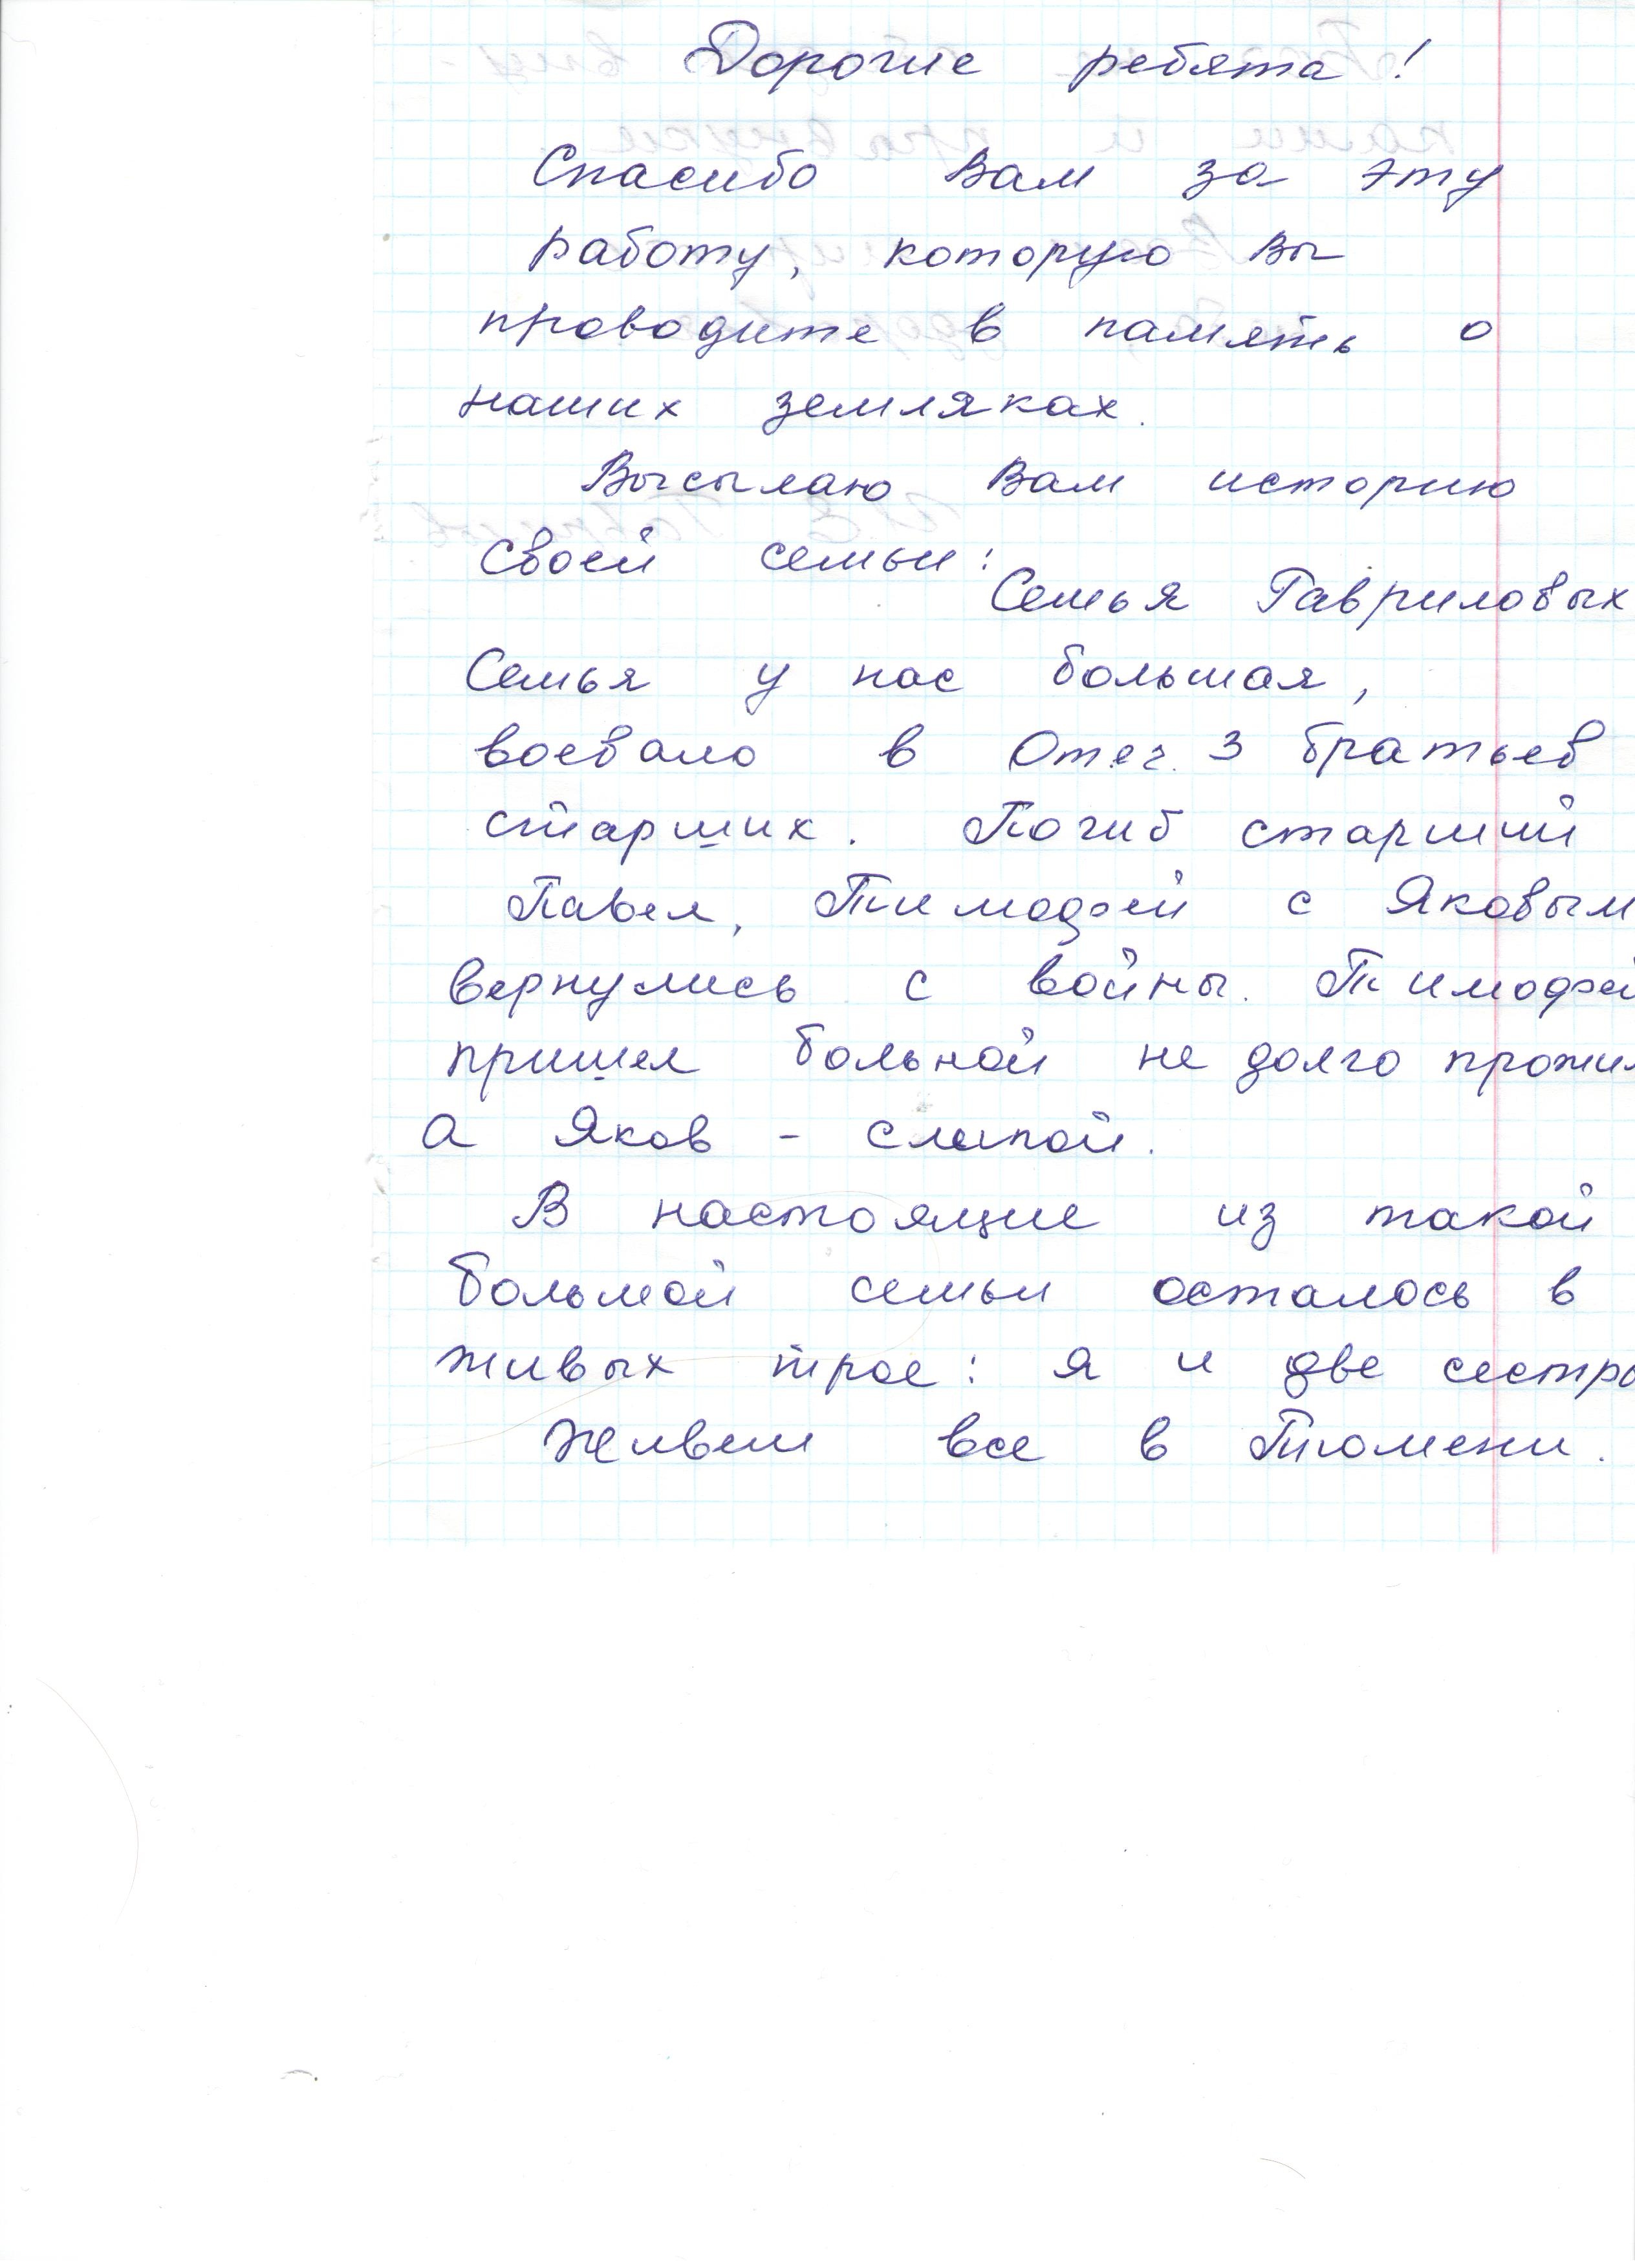 Дорогие ребята!
Спасибо Вам за эту
работу, которую Вы
проводите в память о
наших земляках.
Высылаю Вам историю
своей семьи:
Семья Гавриловых
Семья у нас большая,
воевало в Отеч. 3 братьев
старших. Погиб старший
Павел, Тимофей с Яковым
вернулись с войны. Тимофей
пришел больной не долго прожил
а Яков - слепой.
В настоящие из такой
большой семьи осталось в
живых трое: я и две сестры
Живем все в Тюмени.